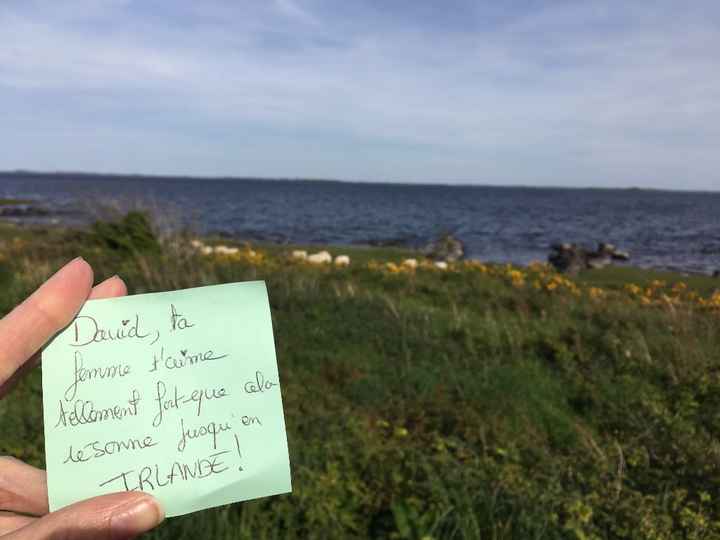 David, ta
femme t'aime
tellement fort que cela
résonne jusqu'en
IRLANDE!